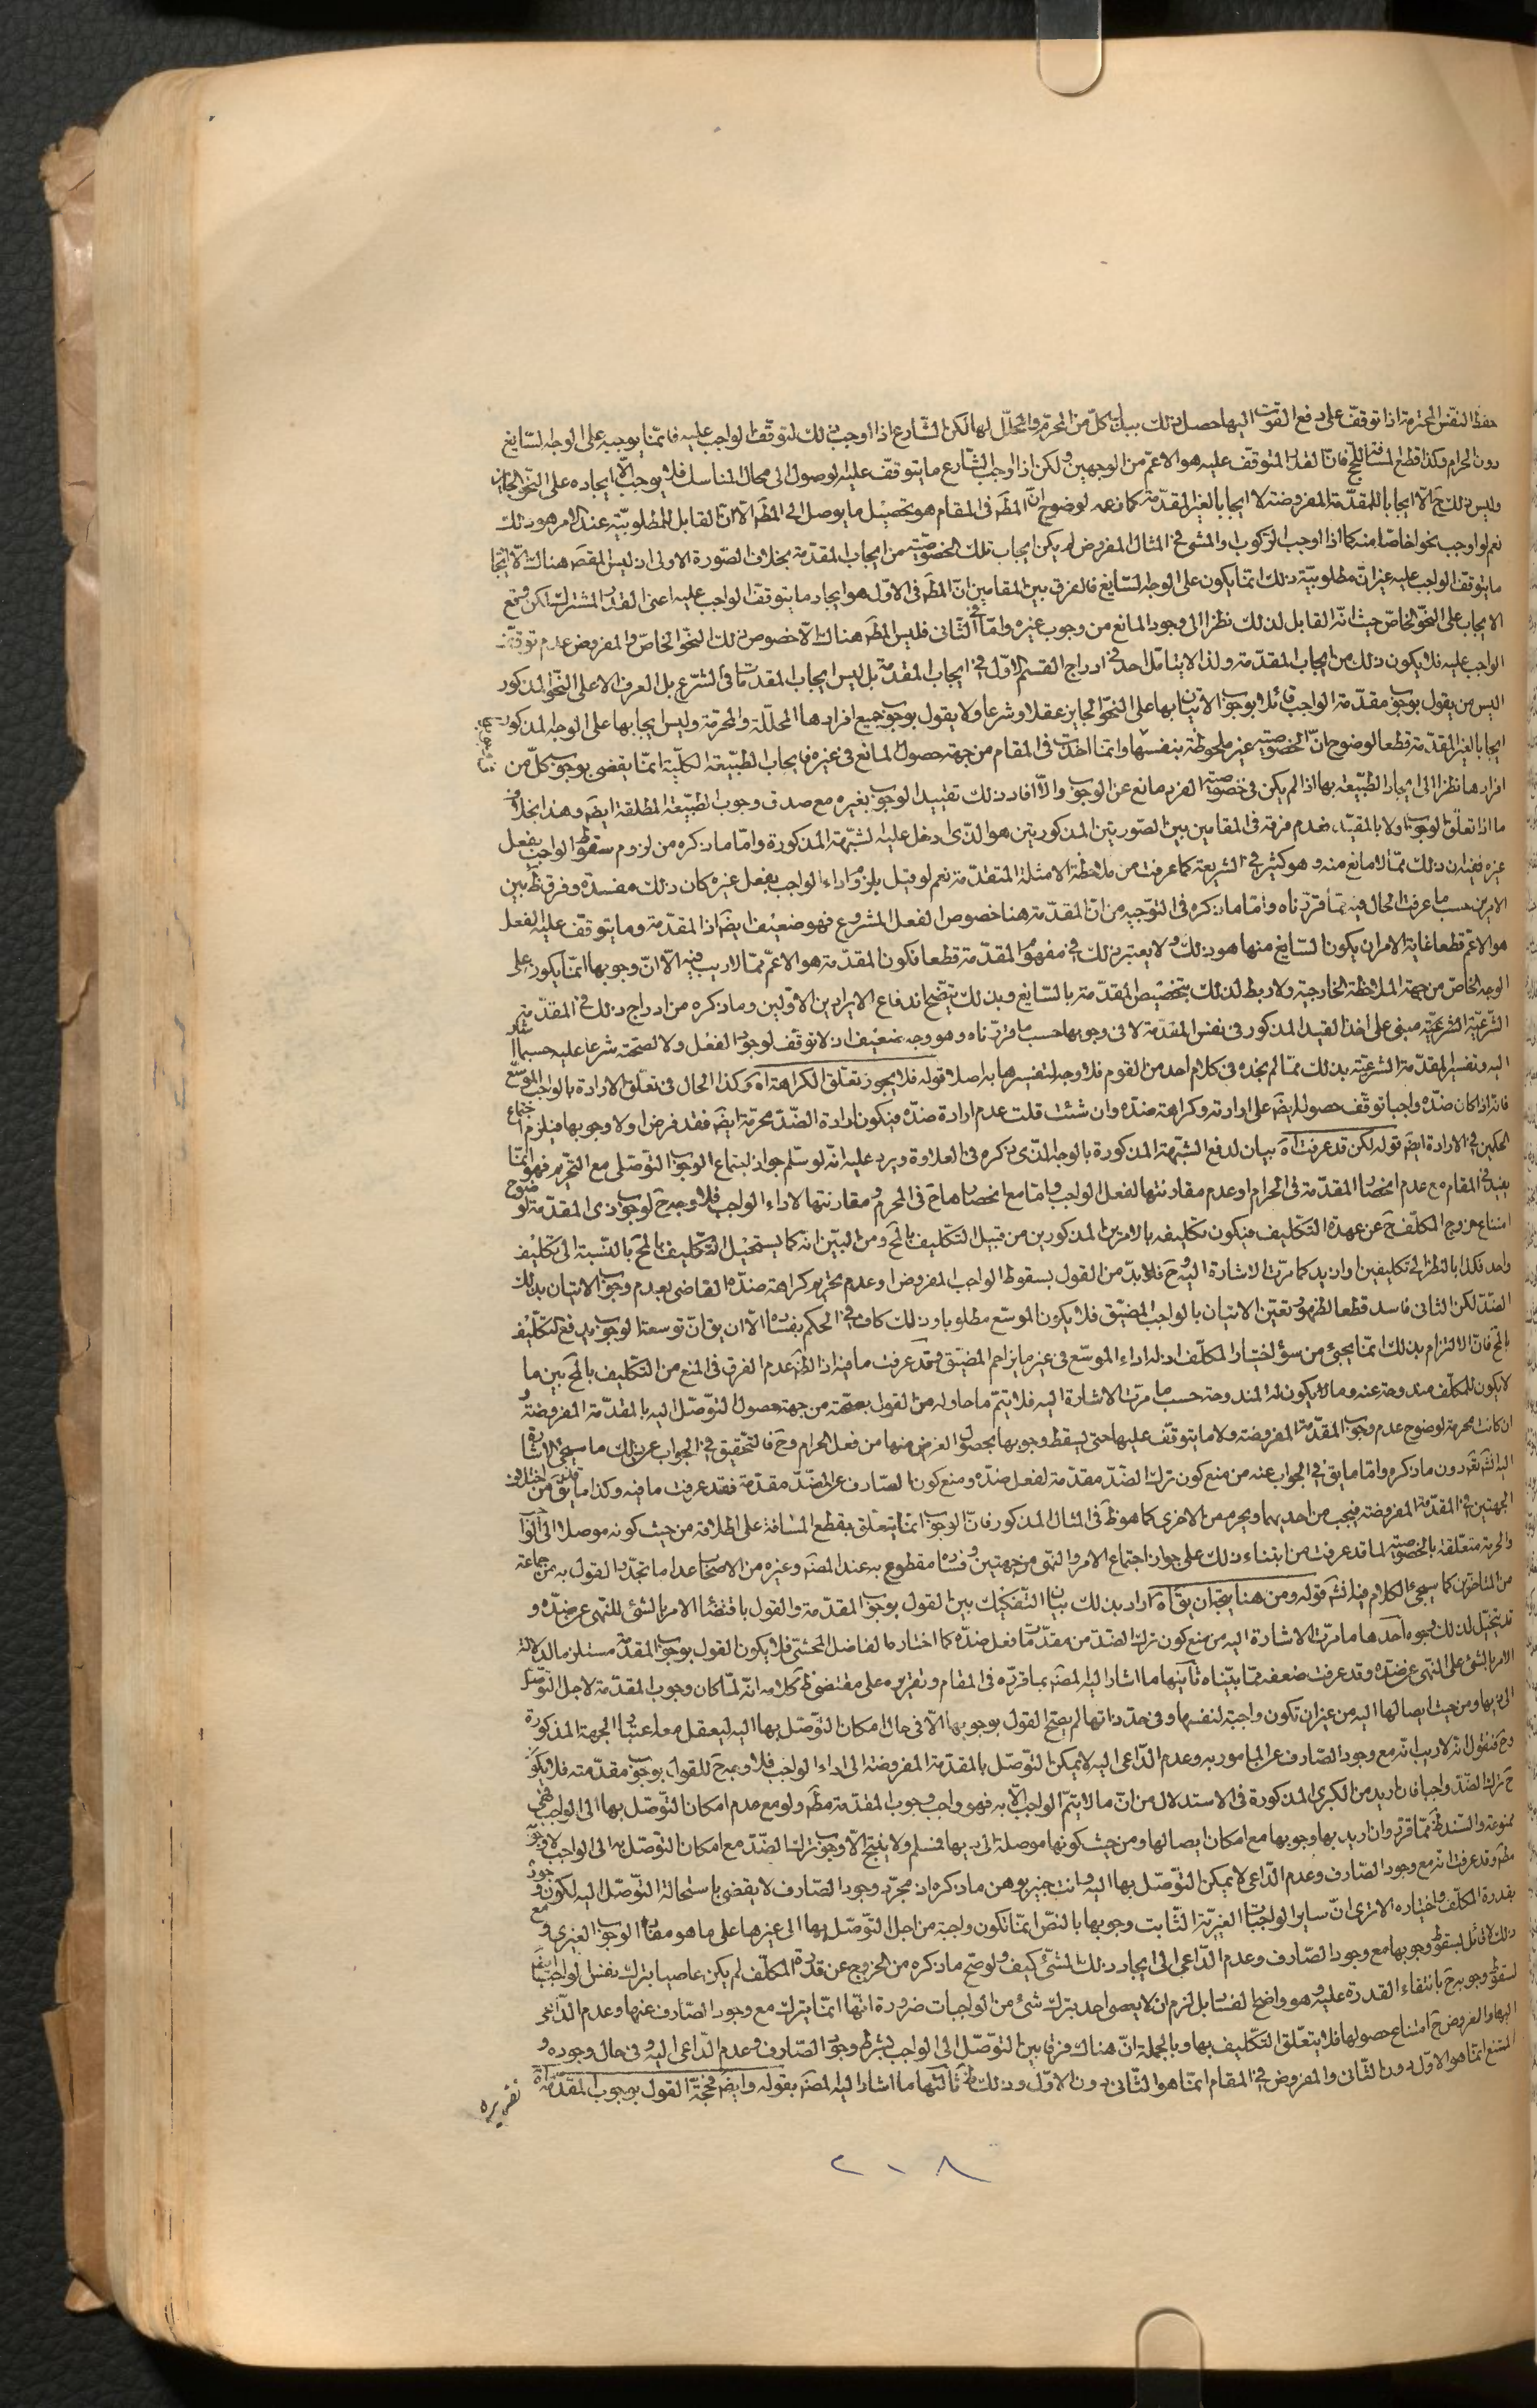 حفظ النفس المحترمة اذا توقف على دفع القوت اليها حصل ذلك ببذل كل من المحرم والمحلل لها لكن الشارع اذا اوجب ذلك لتوقف الواجب عليه فانما يوجبه على الوجه السايغ
دون الحرام وكذا قطع المسافة للحج فان القدر المتوقف عليه هو الاعم من الوجهين ولكن اذا اوجب الشارع ما يتوقف عليه الوصول الى محال المناسك فلا يوجب الا ايجاده على النحو الجايز
وليس ذلك ح الا ايجابا للمقدمة المفروضة لا ايجابا لغير المقدمة كما زعمه لوضوح ان المطم فى المقام هو تحصيل ما يوصل الى المطم الا ان القابل للمطلوبية عند الامر هو ذلك
نعم لو اوجب نحوا خاصا منه كما اذا اوجب الركوب او المشى فى المثال المفروض لم يكن ايجاب تلك الخصوصية من ايجاب المقدمة بخلاف الصورة الاولى اذ ليس المقصم هناك الا ايجاب
ما يتوقف الواجب عليه غير ان مطلوبية ذلك انما يكون على الوجه السايغ فالفرق بين المقامين ان المطم فى الاول هو ايجاد ما يتوقف الواجب عليه اعنى القدر المشترك لكن وقع
الايجاب على النحو الخاص حيث انه القابل لذلك نظرا الى وجود المانع من وجوب غيره واما فى الثانى فليس المطم هناك الا خصوص ذلك النحو الخاص والمفروض عدم توقف
الواجب عليه فلا يكون ذلك من ايجاب المقدمة ولذا لا يتامل احد فى ادراج القسم الاول فى ايجاب المقدمة بل ليس ايجاب المقدمات فى الشرع بل العرف الا على النحو المذكور
اليس من يقول بوجوب مقدمة الواجب قائلا بوجوب الاتيان بها على النحو الجايز عقلا وشرعا ولا يقول بوجوب جميع افرادها المحللة والمحرمة وليس ايجابها على الوجه المذكور
ايجابا لغير المقدمة قطعا لوضوح ان الخصوصية غير ملحوظة بنفسها وانما اخذت فى المقام من جهة حصول المانع فى غيره فايجاب الطبيعة الكلية انما يقضى بوجوب كل من
افرادها نظرا الى ايجاد الطبيعة بها اذا لم يكن فى خصوصية الفرد مانع عن الوجوب والا افاد ذلك تقييد الوجوب بغيره مع صدق وجوب الطبيعة المطلقة ايضم وهذا بخلاف
ما اذا تعلق الوجوب اولا بالمقيد فعدم فرقه فى المقامين بين الصورتين المذكورتين هو الذى ادخل عليه الشبهة المذكورة واما ما ذكره من لزوم سقوط الواجب بفعل
غيره ففيه ان ذلك مما لا مانع منه وهو كثير فى الشريعة كما عرفت من ملاحظة الامثلة المتقدمة نعم لو قيل بلزوم اداء الواجب بفعل غيره كان ذلك مفسدة وفرق ظ بين
الامرين حسب ما عرفت الحال فيه مما قررناه واما ما ذكره فى التوجيه من ان المقدمة هنا خصوص الفعل المشروع فهو ضعيف ايضم اذ المقدمة وما يتوقف عليه الفعل
هو الاعم قطعا غاية الامر ان يكون السايغ منها هو ذلك ولا يعتبر ذلك فى مفهوم المقدمة قطعا فكون المقدمة هو الاعم مما لا ريب فيه الا ان وجوبها انما يكون على
الوجه الخاص من جهة الملاحظة الخارجية ولا ربط لذلك بتخصيص المقدمة بالسايغ وبذلك يتضح اندفاع الايرادين الاولين وما ذكره من ادراج ذلك فى المقدمة
الشرعية مبنى على اخذ القيد المذكور فى نفس المقدمة لا فى وجوبها حسب ما قررناه وهو وجه ضعيف اذ لا توقف لوجود الفعل ولا لصحته شرعا عليه حسبما اشار
اليه وتفسير المقدمة الشرعية بذلك مما لم نجده فى كلام احد من القوم فلا وجه لتفسيرها به اصلا قوله فلا يجوز تعلق الكراهة اه وكذا الحال فى تعلق الارادة بالواجب الموسع
فانه اذا كان ضده واجبا توقف حصوله ايضم على ارادته وكراهة ضده وان شئت قلت عدم ارادة ضده فيكون ارادة الضد محرمة ايضم فقد فرض اولا وجوبها فيلزم اجتماع
الحكمين فى الارادة ايضم قوله لكن قد عرفت اه بيان لدفع الشبهة المذكورة بالوجه الذى ذكره فى العلاوة ويرد عليه انه لو سلم جواز اجتماع الوجوب التوصلى مع التحريم فهو انما
يفيد فى المقام مع عدم انحصار المقدمة فى الحرام او عدم مقارنتها لفعل الواجب واما مع انحصارها ح فى المحرم ومقارنتها لاداء الواجب فلا وجه ح لوجوب ذى المقدمة لوضوح
امتناع خروج المكلف ح عن عهدة التكليف فيكون تكليفه بالامرين المذكورين من قبيل التكليف بالمح ومن البين انه كما يستحيل التكليف بالمح بالنسبة الى تكليف
واحد فكذا بالنظر الى تكليفين او ازيد كما مرت الاشارة اليه وح فلا بد من القول بسقوط الواجب المفروض او عدم تحريم كراهة ضده القاضى بعدم وجوب الاتيان بذلك
الضد لكن الثانى فاسد قطعا لظهور تعين الاتيان بالواجب المضيق فلا يكون الموسع مطلوبا وذلك كاف فى الحكم بفساده الا ان يق ان توسعة الوجوب يدفع التكليف
بالمح فان الالتزام بذلك انما يجئ من سؤ اختيار المكلف اذ له اداء الموسع فى غير ما يزاحم المضيق وقد عرفت ما فيه اذ الظم عدم الفرق فى المنع من التكليف بالمح بين ما
لا يكون للمكلف مندوحة عنه وما لا يكون له المندوحة حسب ما مرت الاشارة اليه فلا يتم ما حاوله من القول بصحته من جهة حصول التوصل اليه بالمقدمة المفروضة و
ان كانت محرمة لوضوح عدم وجوب المقدمة المفروضة ولا ما يتوقف عليها حتى يسقط وجوبها بحصول الغرض منها من فعل الحرام وح فالتحقيق فى الجواب عن ذلك ما سيجئ الاشارة
اليه انشم تعم دون ما ذكره واما ما يق فى الجواب عنه من منع كون ترك الضد مقدمة لفعل ضده ومنع كون الصارف عن الضد مقدمة فقد عرفت ما فيه وكذا ما يق من اختلاف
الجهتين فى المقدمة المفروضة فيجب من احديهما ويحرم من الاخرى كما هو ظم فى المثال المذكور فان الوجوب انما يتعلق بقطع المسافة على اطلاقه من حيث كونه موصلا الى الواجب
والحرمة متعلقة بالخصوصية لما قد عرفت من ابتناء ذلك على جواز اجتماع الامر والنهى من جهتين وفساده مقطوع به عند المصم وغيره من الاصحاب عدا ما تجدد القول به من جماعة
من المتاخرين كما سيجئ الكلام فيه انشم قوله ومن هنا يتجه ان يق اه اراد بذلك بيان التفكيك بين القول بوجوب المقدمة والقول باقتضاء الامر بالشئ للنهى عن ضده و
قد يتخيل لذلك وجوه احدها ما مرت الاشارة اليه من منع كون ترك الضد من مقدمات فعل ضده كما اختاره الفاضل المحشى فلا يكون القول بوجوب المقدمة مستلزما لدلالة
الامر بالشئ على النهى عن ضده وقد عرفت ضعفه مما بيناه ثانيها ما اشار اليه المصم بما قرره فى المقام وتقريره على مقتضى ظم كلامه انه لما كان وجوب المقدمة لاجل التوصل
الى ذيها ومن حيث ايصالها اليه من غير ان تكون واجبة لنفسها وفى حد ذاتها لم يصح القول بوجوبها الا فى حال امكان التوصل بها اليه ليعقل معه اعتبار الجهة المذكورة
وح فنقول انه لا ريب انه مع وجود الصارف عن المامور به وعدم الداعى اليه لا يمكن التوصل بالمقدمة المفروضة الى اداء الواجب فلا وجه ح للقول بوجوب مقدمته فلا يكون
ح ترك الضد واجبا فان اريد من الكبرى المذكورة فى الاستدلال من ان ما لا يتم الواجب الا به فهو واجب وجوب المقدمة مطم ولو مع عدم امكان التوصل بها الى الواجب فهى
ممنوعة والسند ظم مما قرر وان اريد بها وجوبها مع امكان ايصالها ومن حيث كونها موصلة الى ذيها فمسلم ولا ينتج الا وجوب ترك الضد مع امكان التوصل به الى الواجب لا وجوبه
مطم وقد عرفت انه مع وجود الصارف وعدم الداعى لا يمكن التوصل بها اليه وانت خبير بوهن ما ذكره اذ مجرد وجود الصارف لا يقضى باستحالة التوصل اليه لكون وجوده
بقدرة المكلف واختياره الا ترى ان ساير الواجبات الغيرية الثابت وجوبها بالنص انما تكون واجبة من اجل التوصل بها الى غيرها على ما هو مفاد الوجوب الغيرى و مع
ذلك لا قائل بسقوط وجوبها مع وجود الصارف وعدم الداعى الى ايجاد ذلك الشئ كيف ولو صح ما ذكره من الخروج عن قدرة المكلف لم يكن عاصيا بترك نفس الواجب ايضم
لسقوط وجوبه ح بانتفاء القدرة عليه وهو واضح الفساد بل لزم ان لا يعصى احد بترك شئ من الواجبات ضرورة انها انما يترك مع وجود الصارف عنها وعدم الداعى
اليها والمفروض ح امتناع حصولها فلا يتعلق التكليف بها وبالجملة ان هناك فرقا بين التوصل الى الواجب بشرط وجود الصارف وعدم الداعى اليه وفى حال وجوده و
الممتنع انما هو الاول دون الثانى والمفروض فى المقام انما هو الثانى دون الاول وذلك ظم ثالثها ما اشار اليه المصم بقوله وايضم فحجة القول بوجوب المقدمة اه
تقريره
٢٠٨